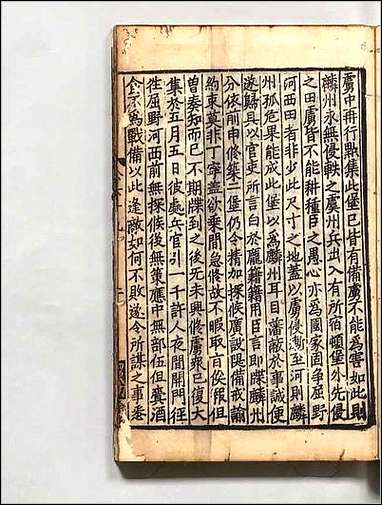 虜中再行點集此堡已皆有備虜不能為害如此則
麟州永無侵軼之虞州兵出入有所宿頓堡外先侵
之田虜皆不能耕種臣之愚心亦為國家固爭屈野
河西田者非少此尺寸之地蓋以虜侵漸至河則麟
州孤危果能成此堡以為麟州耳目藩蔽於事誠便
遂歸具以官吏所言白於龐籍籍用臣言即牒麟州
分依前申修築二堡仍令精加探候廣設隄備戒諭
約束莫非丁寧盖欲乗間急修故不暇取旨俟報但
曾奏知而已不期牒到之後未興修虜衆已復大
集於五月五日彼處兵官引一千許人夜間開門徑
徃屈野河西前無探候後無策應中無部伍但賫酒
食不爲戰備以此逢敵如何不敗遂令所謀之事悉